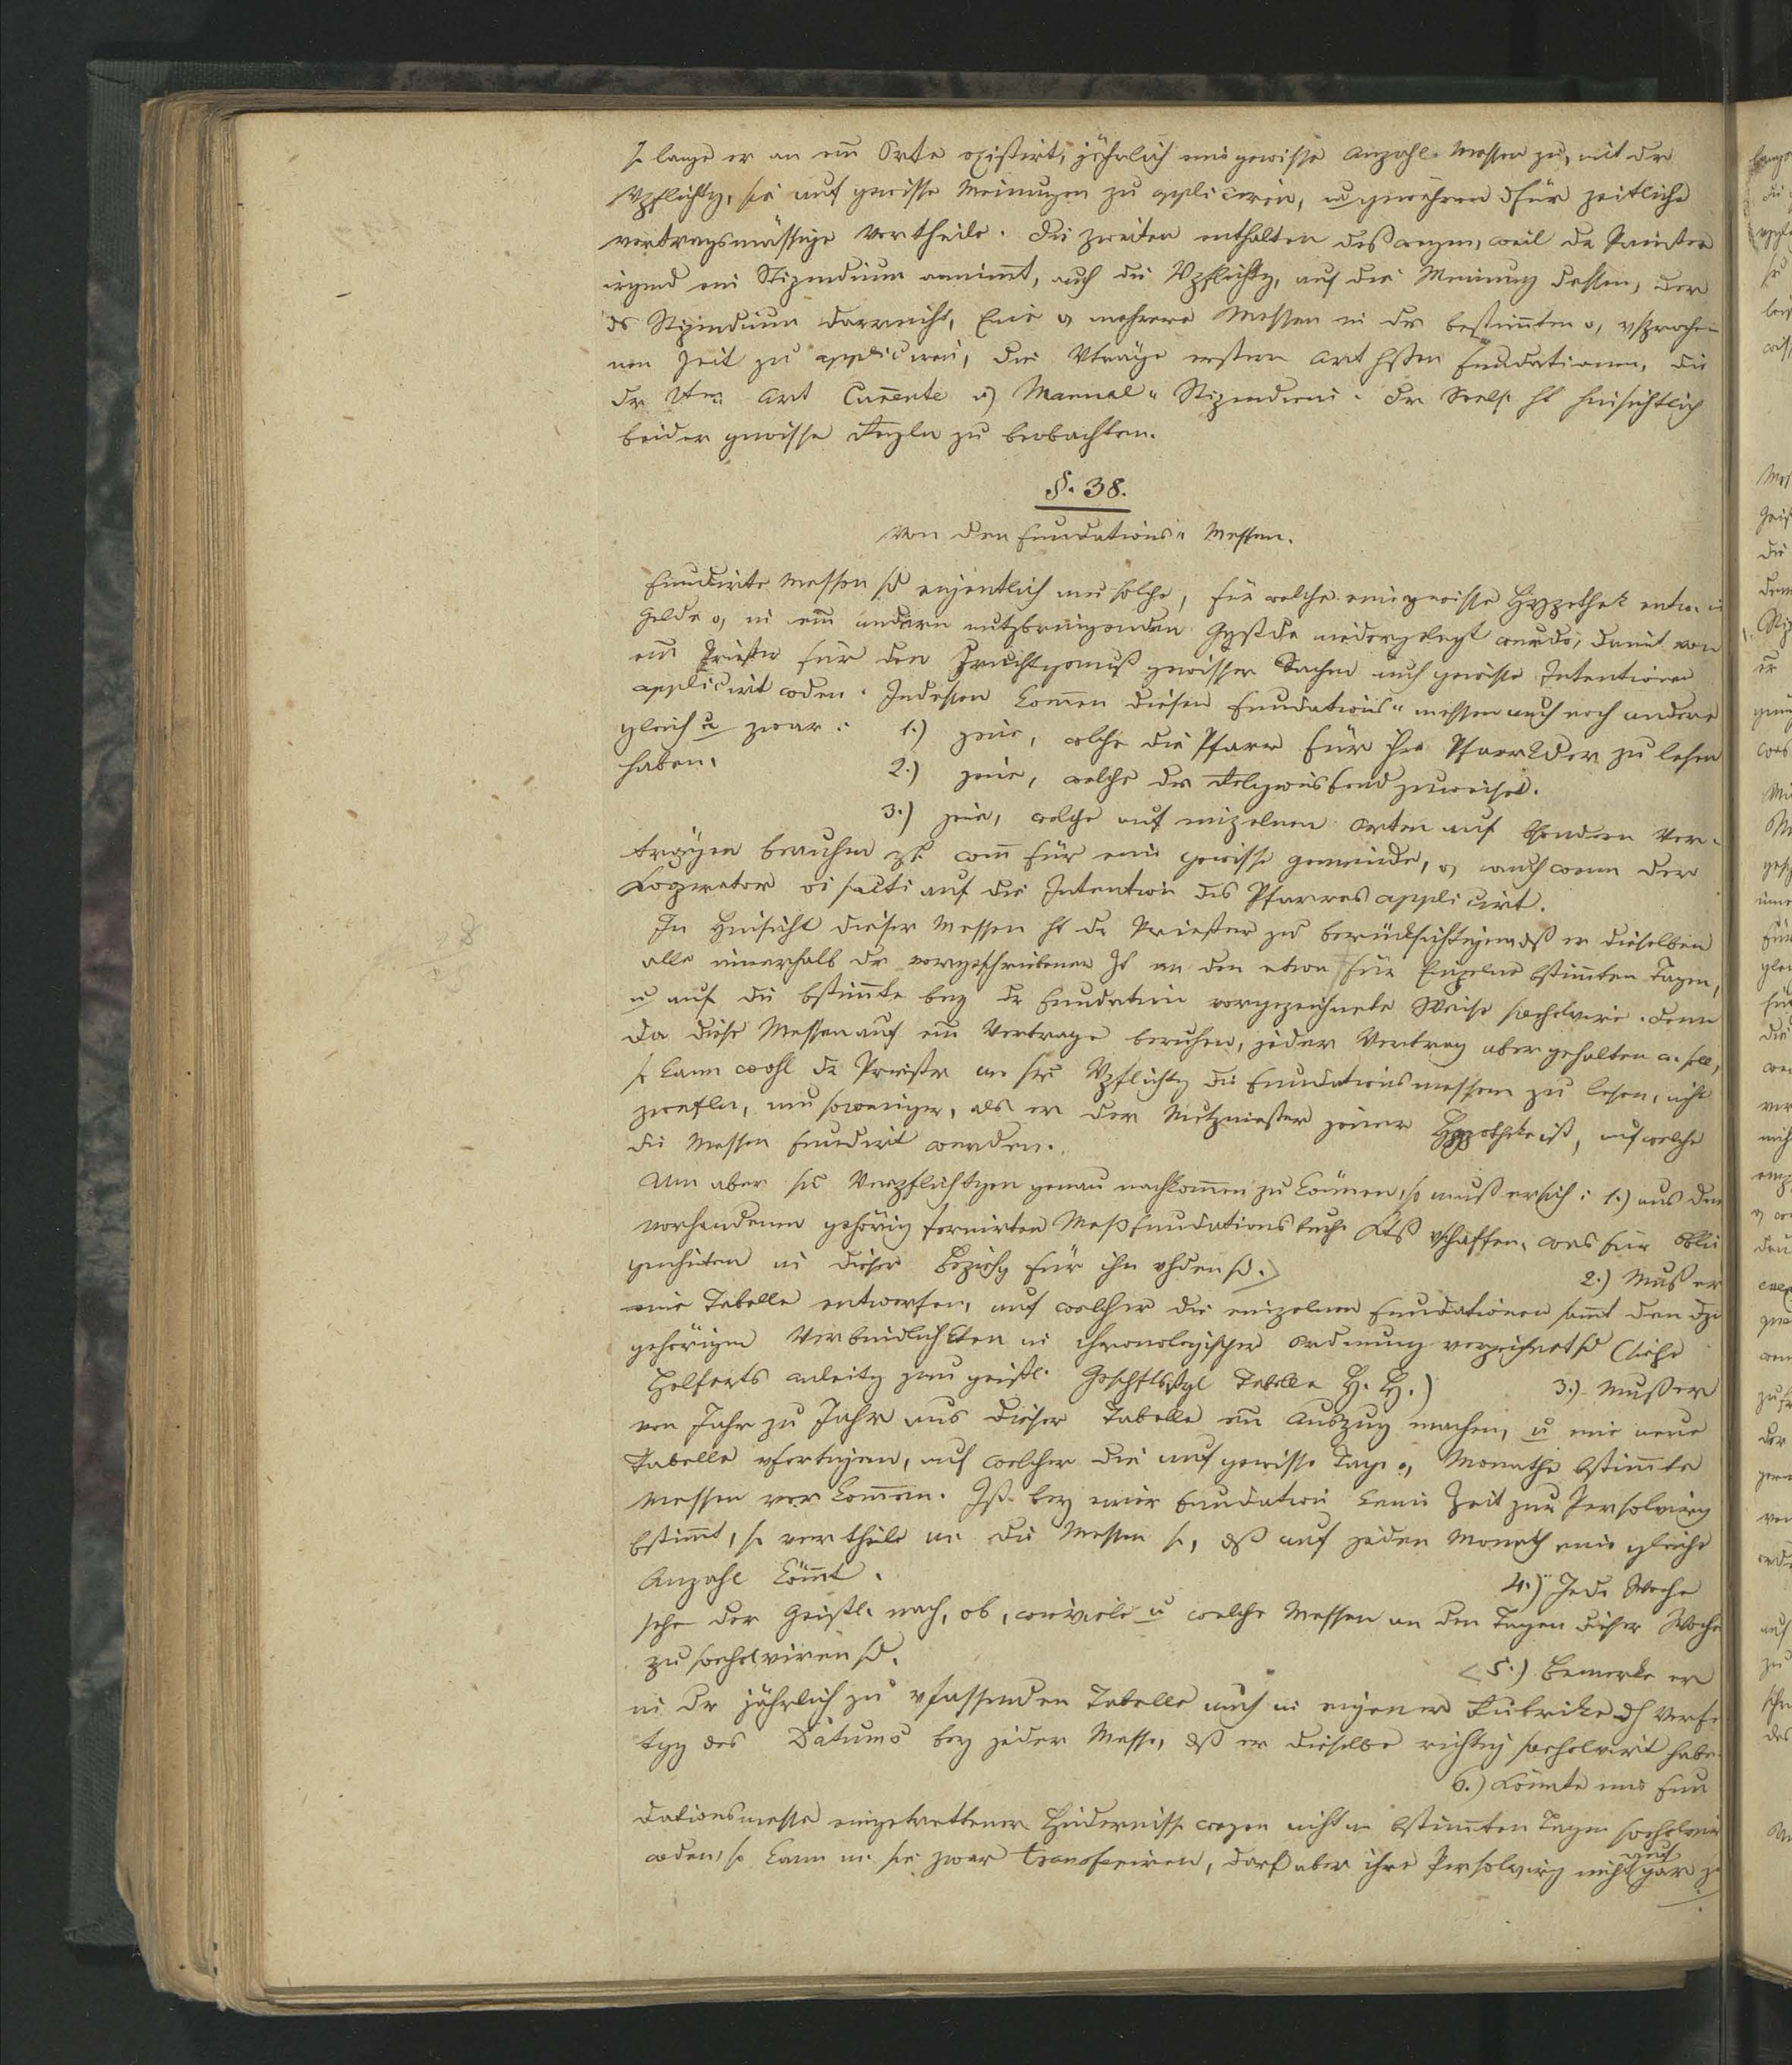 so lange er an einem Orte existirt, jährlich eine gewisse Anzahl Messen zu, mit der
Vpflichtg, sie auf gewisse Meinungen zu appliciren, u gewähren dfür zeitliche
vertragsmässige Vortheile. Die zweiten enthalten desswegen, weil der Priester
irgend ein Stipendium annimt, auch die Vpflichtg, auf die Meinung dessen, der
ds Stipendium darreicht, Eine o, mehrere Messen in der bestimten o, vsproche-
nen Zeit zu appliciren, die Vträge erstern Art hssen Fundationen, die
der 2ten Art Currente o) Manual- Stipendien. Der Seels. ht hinsichtlich
beider gewisse Regeln zu beobachten.
§. 38.
Von den Fundations- Messen.
Fundirte Messen sd eigentlich nur solche, für welche eine gewisse Hypothek entw. in
Gelde o, in einem andern nutzbringenden Ggstde niedergelegt wurde, damit von
einem Priester für den Fruchtgenuß gewisser Sachen auch gewisse Intentionen
applicirt wden. Indessen kommen diesen Fundations- messen auch noch andere
gleich u zwar: 1.) jene, welche die Pfarr für ihre Pfarrkder zu lesen
haben. 2.) jene, welche der Religionsfond zuweiset.
3.) jene, welche auf einzelnen Orten auf bsondern Ver-
trägen beruhen zB. wenn für eine gewisse Gemeinde, o, auch wenn der
Kooperator vi pacti auf die Intention des Pfarrers applicirt.
In Hinsicht dieser Messen ht der Priester zu berücksichtigen dß er dieselben
alle innerhalb der vorgeschriebenen Zt an den etwa für Einzelne bstimten Tagen,
u auf die bstimmte bey der Fundation vorgezeichnete Weise psolvire. Denn
da diese Messen auf einem Vertrage beruhen, jeder Vertrag aber gehalten w. soll,
so kann wohl der Priester an seine Vpflichtg die Fundationsmessen zu lesen, nicht
zweifeln, um soweniger, als er der Nutzniesser jener Hypotheke ist, auf welche
die Messen fundirt werden.
Um aber sr Verpflichtgen genau nachkommen zu können, so muß er sich: 1.) aus dem
vorhandenen gehörig formirten Meßfundationsbuche Ktß vschaffen, was für Oblie
genheiten in dieser Beziehg für ihn vhden sd. 2.) Muß er
eine Tabelle entwerfen, auf welcher die einzelnen Fundationen samt den dzu
gehörigen Verbindlichkten in chronologischer Ordnung verzeichnet sd (siehe
Helferts Anleitg zum geistl. Geschftsstyl Tabelle H. H.) 3.) Muß er
von Jahr zu Jahr aus dieser Tabelle einen Auszug machen, u eine neue
Tabelle vfertigen, auf welcher die auf gewisse Tage o, Monathe bstimmte
Messen vorkommen. Ist bey einer Fundation keine Zeit zur Persolvirg
bstimt, so vertheile er die Messen so, dß auf jeden Monath eine gleiche
Anzahl kömt. 4.) Jede Woche
sehe der Geistl. nach, ob, wieviele u welche Messen an den Tagen dieser Woche
zu psolviren sd. 5.) Bemerke er
in der jährlich zu vfassenden Tabelle auch in eigener Rubrike dh
des Datums bey jeder Messe, dß er dieselbe richtig psolvirt habe.
6.) Könnte eine Fun
dationsmesse eingetrettener Hindernisse wegen nicht am bstimmten Tage
wden, so kann er sie zwar transferiren, darf aber ihre Persolvirg nicht auf gar